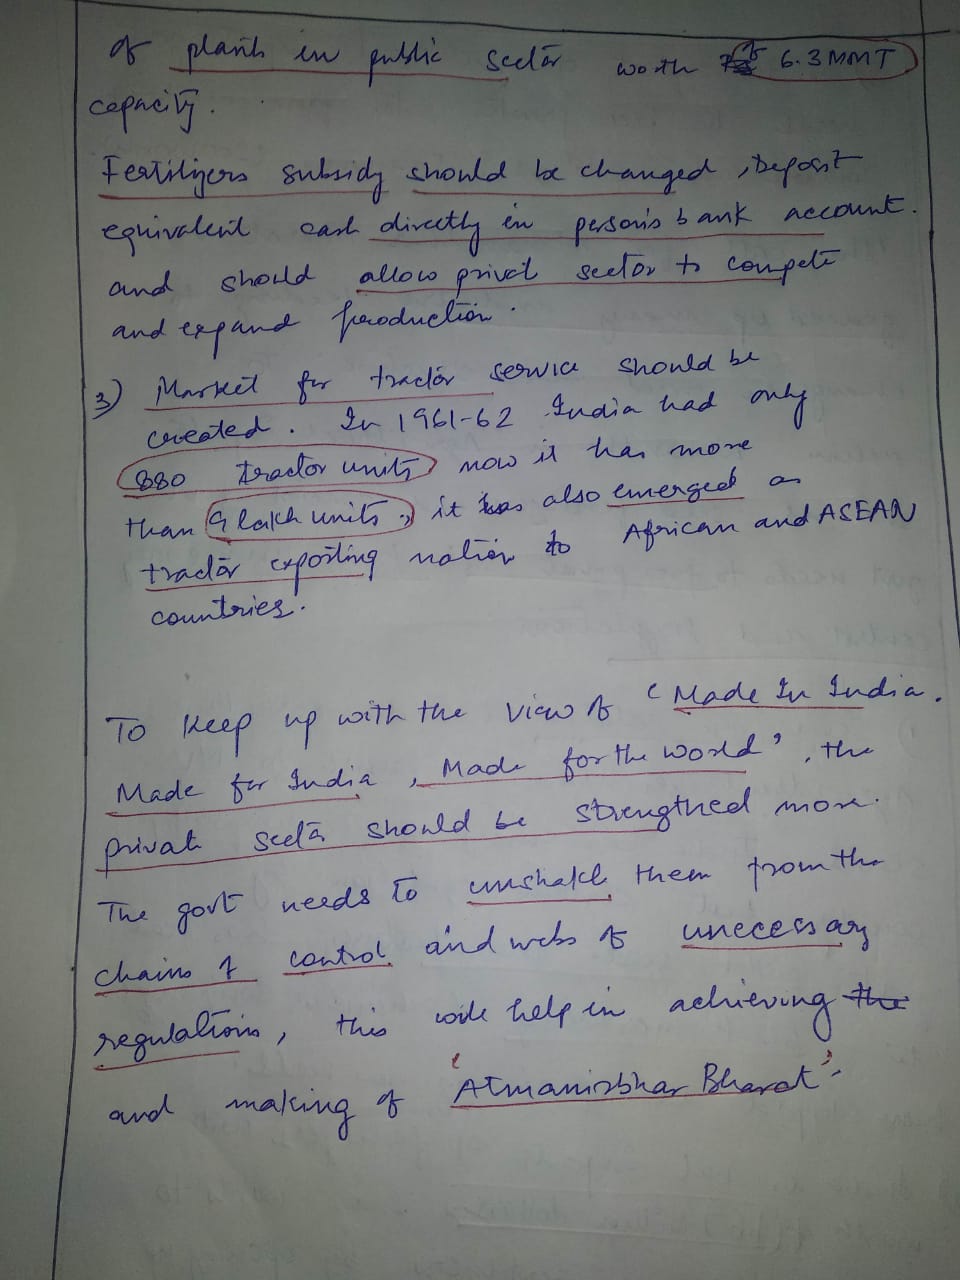 of plants in public sector worth of 6.3 MMT
capacity.
Fertilizers subsidy should be changed, Deposit
equivalent cash directly in person's bank account.
and should allow privat sector to compete
and expand production.
3) Market for tractor service should be
created. In 1961-62 India had only
880 tractor units now it has more
than 9 lakh units, it has also emerged as
tractor exporting nation to African and ASEAN
countries.
To keep up with the view of 'Made In India.
Made for India, Made for the World', the
private sector should be strengthed more.
The govt needs to unshakle them from the
chains of control and webs of unecessary
regulations, this will help in achieving the
and making of 'Atmanirbhar Bharat'.